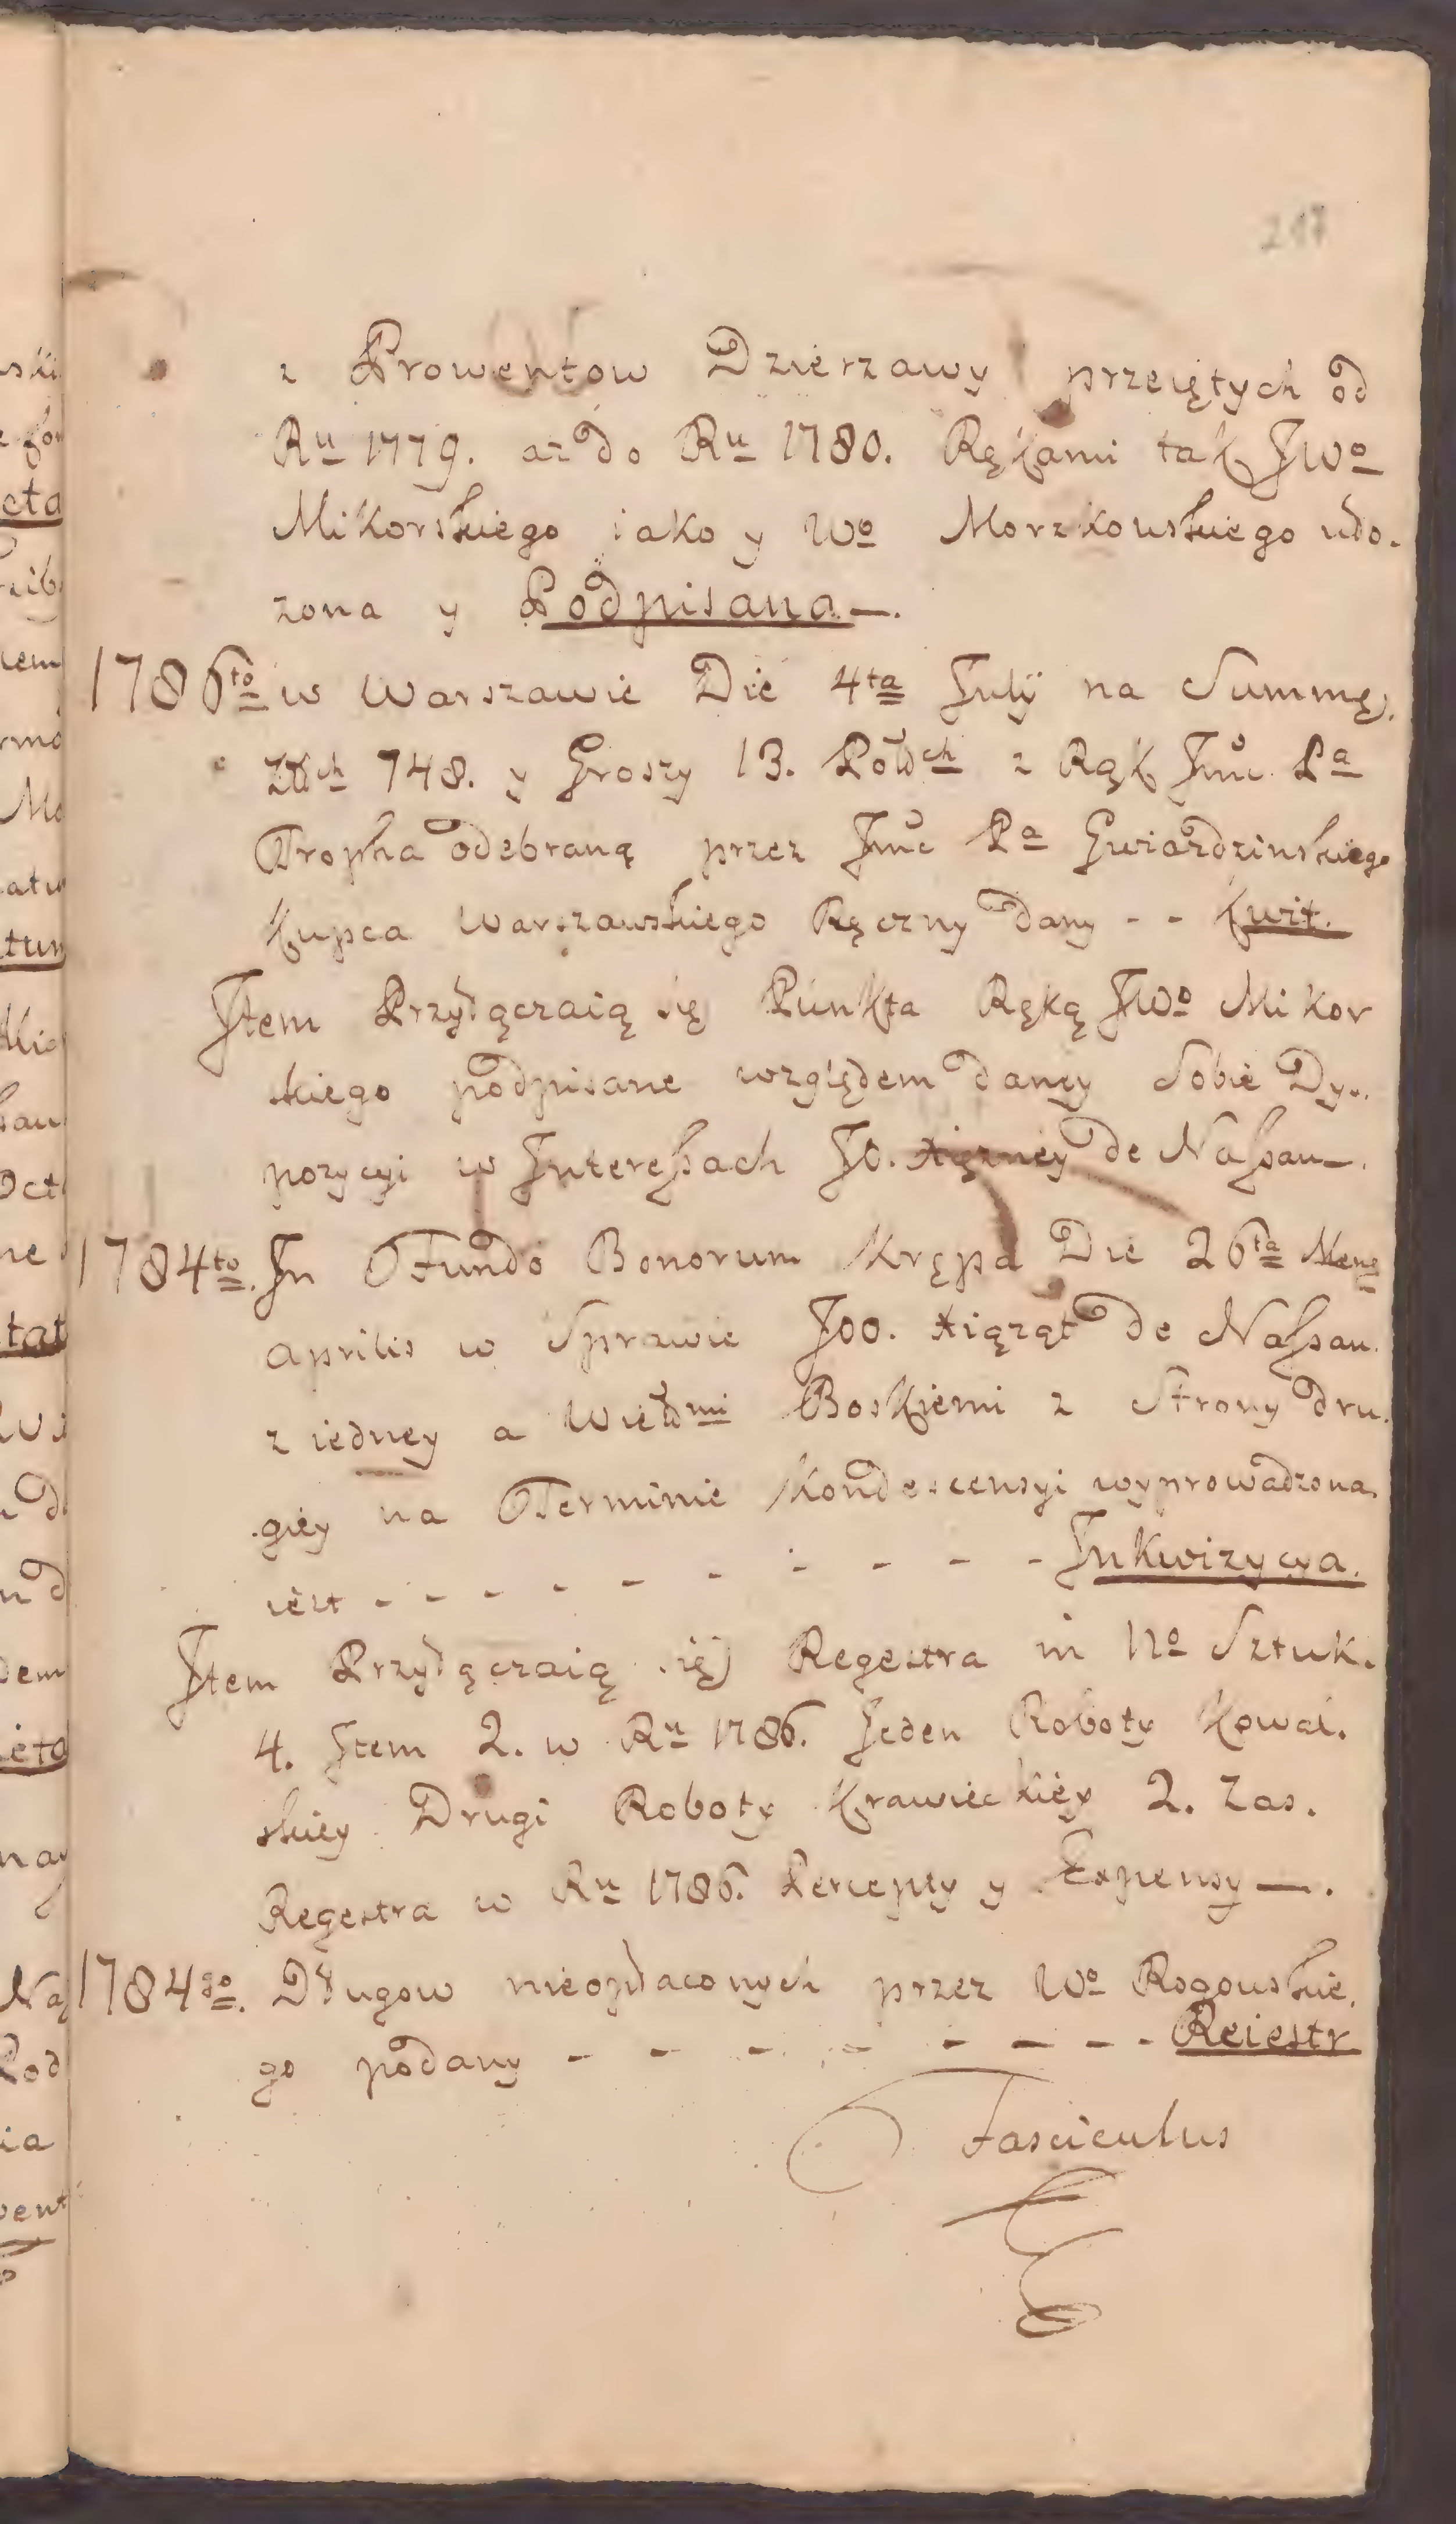 217
z Prowentow Dzierzawy przeiętych od
Ru 1779. aż do Ru 1780. Rękami tak JWo
Mikorskiego iako y Wo Morzkowskiego uło.
zona y Podpisana —.
1786to w Warszawie Die 4ta July na Summę
złłch 748. y Groszy 13. Polch z Rąk Jmc Pa
Tropha odebraną przez Jmc Pa Gwiazdzinskiego
Kupca Warszawskiego Ręczny dany - - Kwit.
Item Przyłączaią się Punkta Ręką JWo Mikor
skiego podpisane względem daney Sobie Dy..
pozycyi w Interessach JO. Xiężney de Nassau —.
1784to. In Fundo Bonorum Krępa Die 26ta Mens
Aprilis w Sprawie JOO. Xiążąt de Nassau.
z iedney a Wielmi Boskiemi z Strony dru.
giey na Terminie Kondescensyi wyprowadzona.
iest - - - - - - - - - - Inkwizycya.
Item Przyłączaią się Regestra in No Sztuk.
4. Item 2. w Ru 1786. Jeden Roboty Kowal.
skiey Drugi Roboty Krawieckiey 2. Zas.
Regestra w Ru 1786. Percepty y Expensy —.
1784go. Długow nieopłaconych przez Wo Rogowskie.
go podany - - - - - - - - Reiestr
Fasciculus